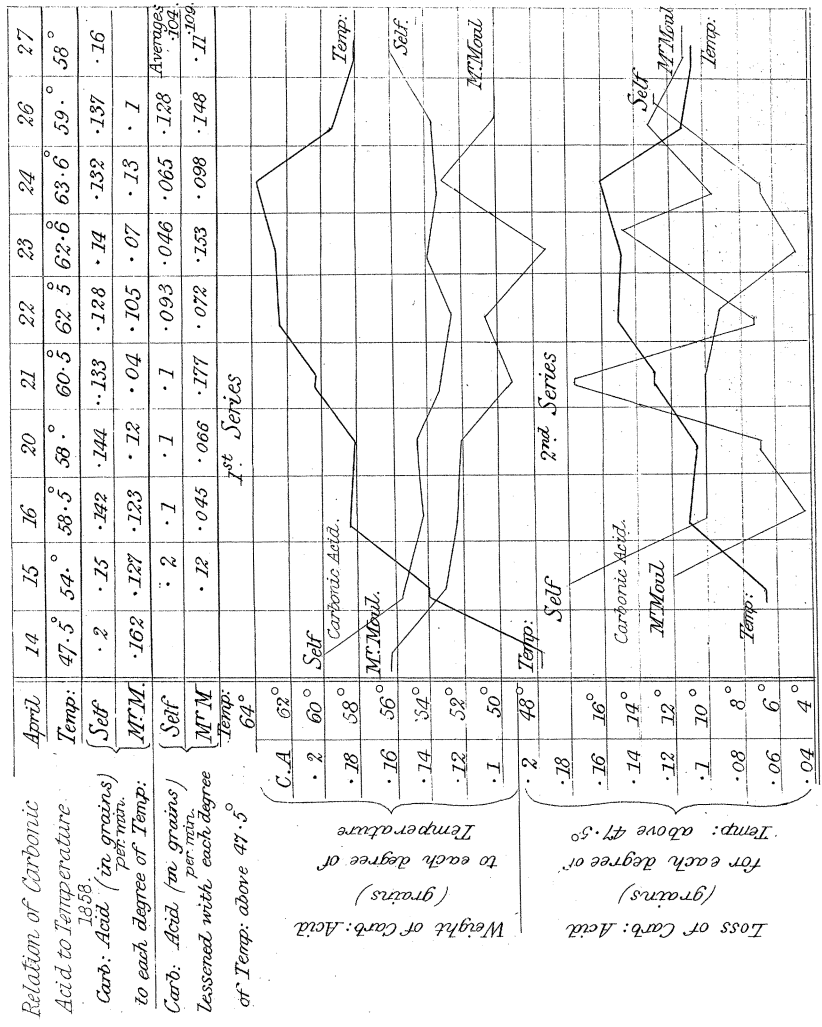 Relation of Carbonic
Acid to Temperature
1858.
April 14 15 16 20 21 22 23 24 26 27
Temp: 47·5° 54·° 58·5° 58·° 60·5° 62 5° 62·6° 63·6° 59·° 58°
Carb: Acid (in grains) per min. to each degree of Temp:
Self ·2 ·15 ·142 ·144 ··133 ·128 ·14 ·132 ·137 ·16
Mr M. ·162 ·127 ·123 ·12 ·04 ·105 ·07 ·13 ·1
Carb: Acid (in grains) per min. lessened with each degree of Temp: above 47·5°
Self ·2 ·1 ·1 ·1 ·093 ·046 ·065 ·128 Averages ·104
Mr M ·12 ·045 ·066 ·177 ·072 ·153 ·098 ·148 ·11 ·109
Temp:
64°
1st Series
C.A 62°
·2 60°
·18 58°
·16 56°
·14 54°
·12 52°
·1 50°
·2 48°
·18
·16 16°
·14 14°
·12 12°
·1 10°
·08 8°
·06 6°
·04 4°
Weight of Carb: Acid
(grains)
to each degree of
Temperature
Self
Carbonic Acid.
Mr Moul.
Temp:
Temp:
Self.
Mr Moul
2nd Series
Loss of Carb: Acid
(grains)
for each degree of
Temp: above 47·5°
Self
Carbonic Acid.
Mr Moul
Temp:
Self
Mr Moul
Temp: